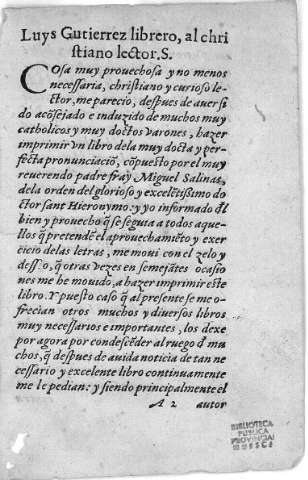 Luys Gutierrez librero, al chri
stiano lector. S.
COsa muy prouechosa y no menos
necessaria, christiano y curioso le-
ctor, me parecio, despues de auer si
do acõsejado e induzido de muchos muy
catholicos y muy doctos varones, hazer
imprimir vn libro dela muy docta y per-
fecta pronunciaciõ, cõpuesto por el muy
reuerendo padre fray Miguel Salinas,
dela orden del glorioso y excelẽtissimo do
ctor sant Hieronymo: y yo informado d̃l
bien y prouecho q̃ se seguia a todos aque-
llos q̃ pretendẽ el aprouechamiẽto y exer
cicio delas letras, me moui con el zelo y
desseo, q̃ otras vezes en semejãtes ocasio
nes me he mouido, a hazer imprimir este
libro. Y puesto caso q̃ al presente se me o-
frecian otros muchos y diuersos libros
muy necessarios e importantes, los dexe
por agora por condescẽder al ruego d̃ mu
chos, q̃ despues de auida noticia de tan ne
cessario y excelente libro continuamente
me le pedian: y siendo principalmente el
A 2 autor
BIBLIOTECA
PUBLICA
PROVINCIAL
HUESCA